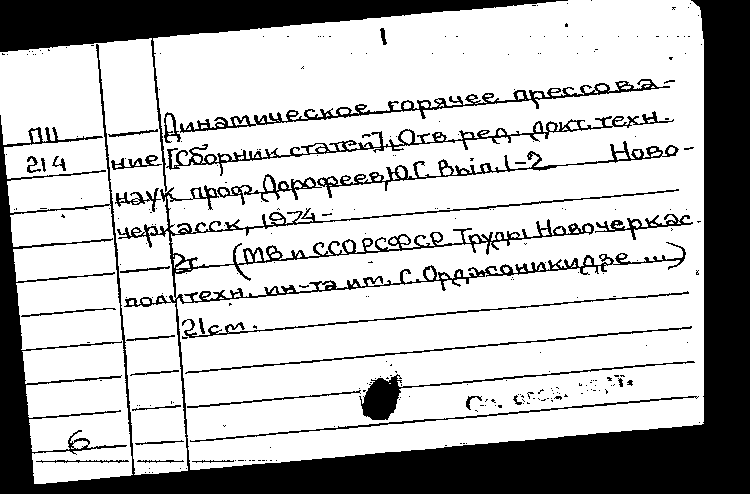 1
Динамическое горячее прессова-
П11
214
ние [Сборник статей]. Отв. ред. докт. техн.
наук проф. Дорофеев Ю.Г. Вып. 1-2 Ново-
черкасск, 1974-
2т. (МВ и ССО РСФСР. Труды Новочеркас.
политехн. ин-та им. С. Орджоникидзе ...)
21 см.
6